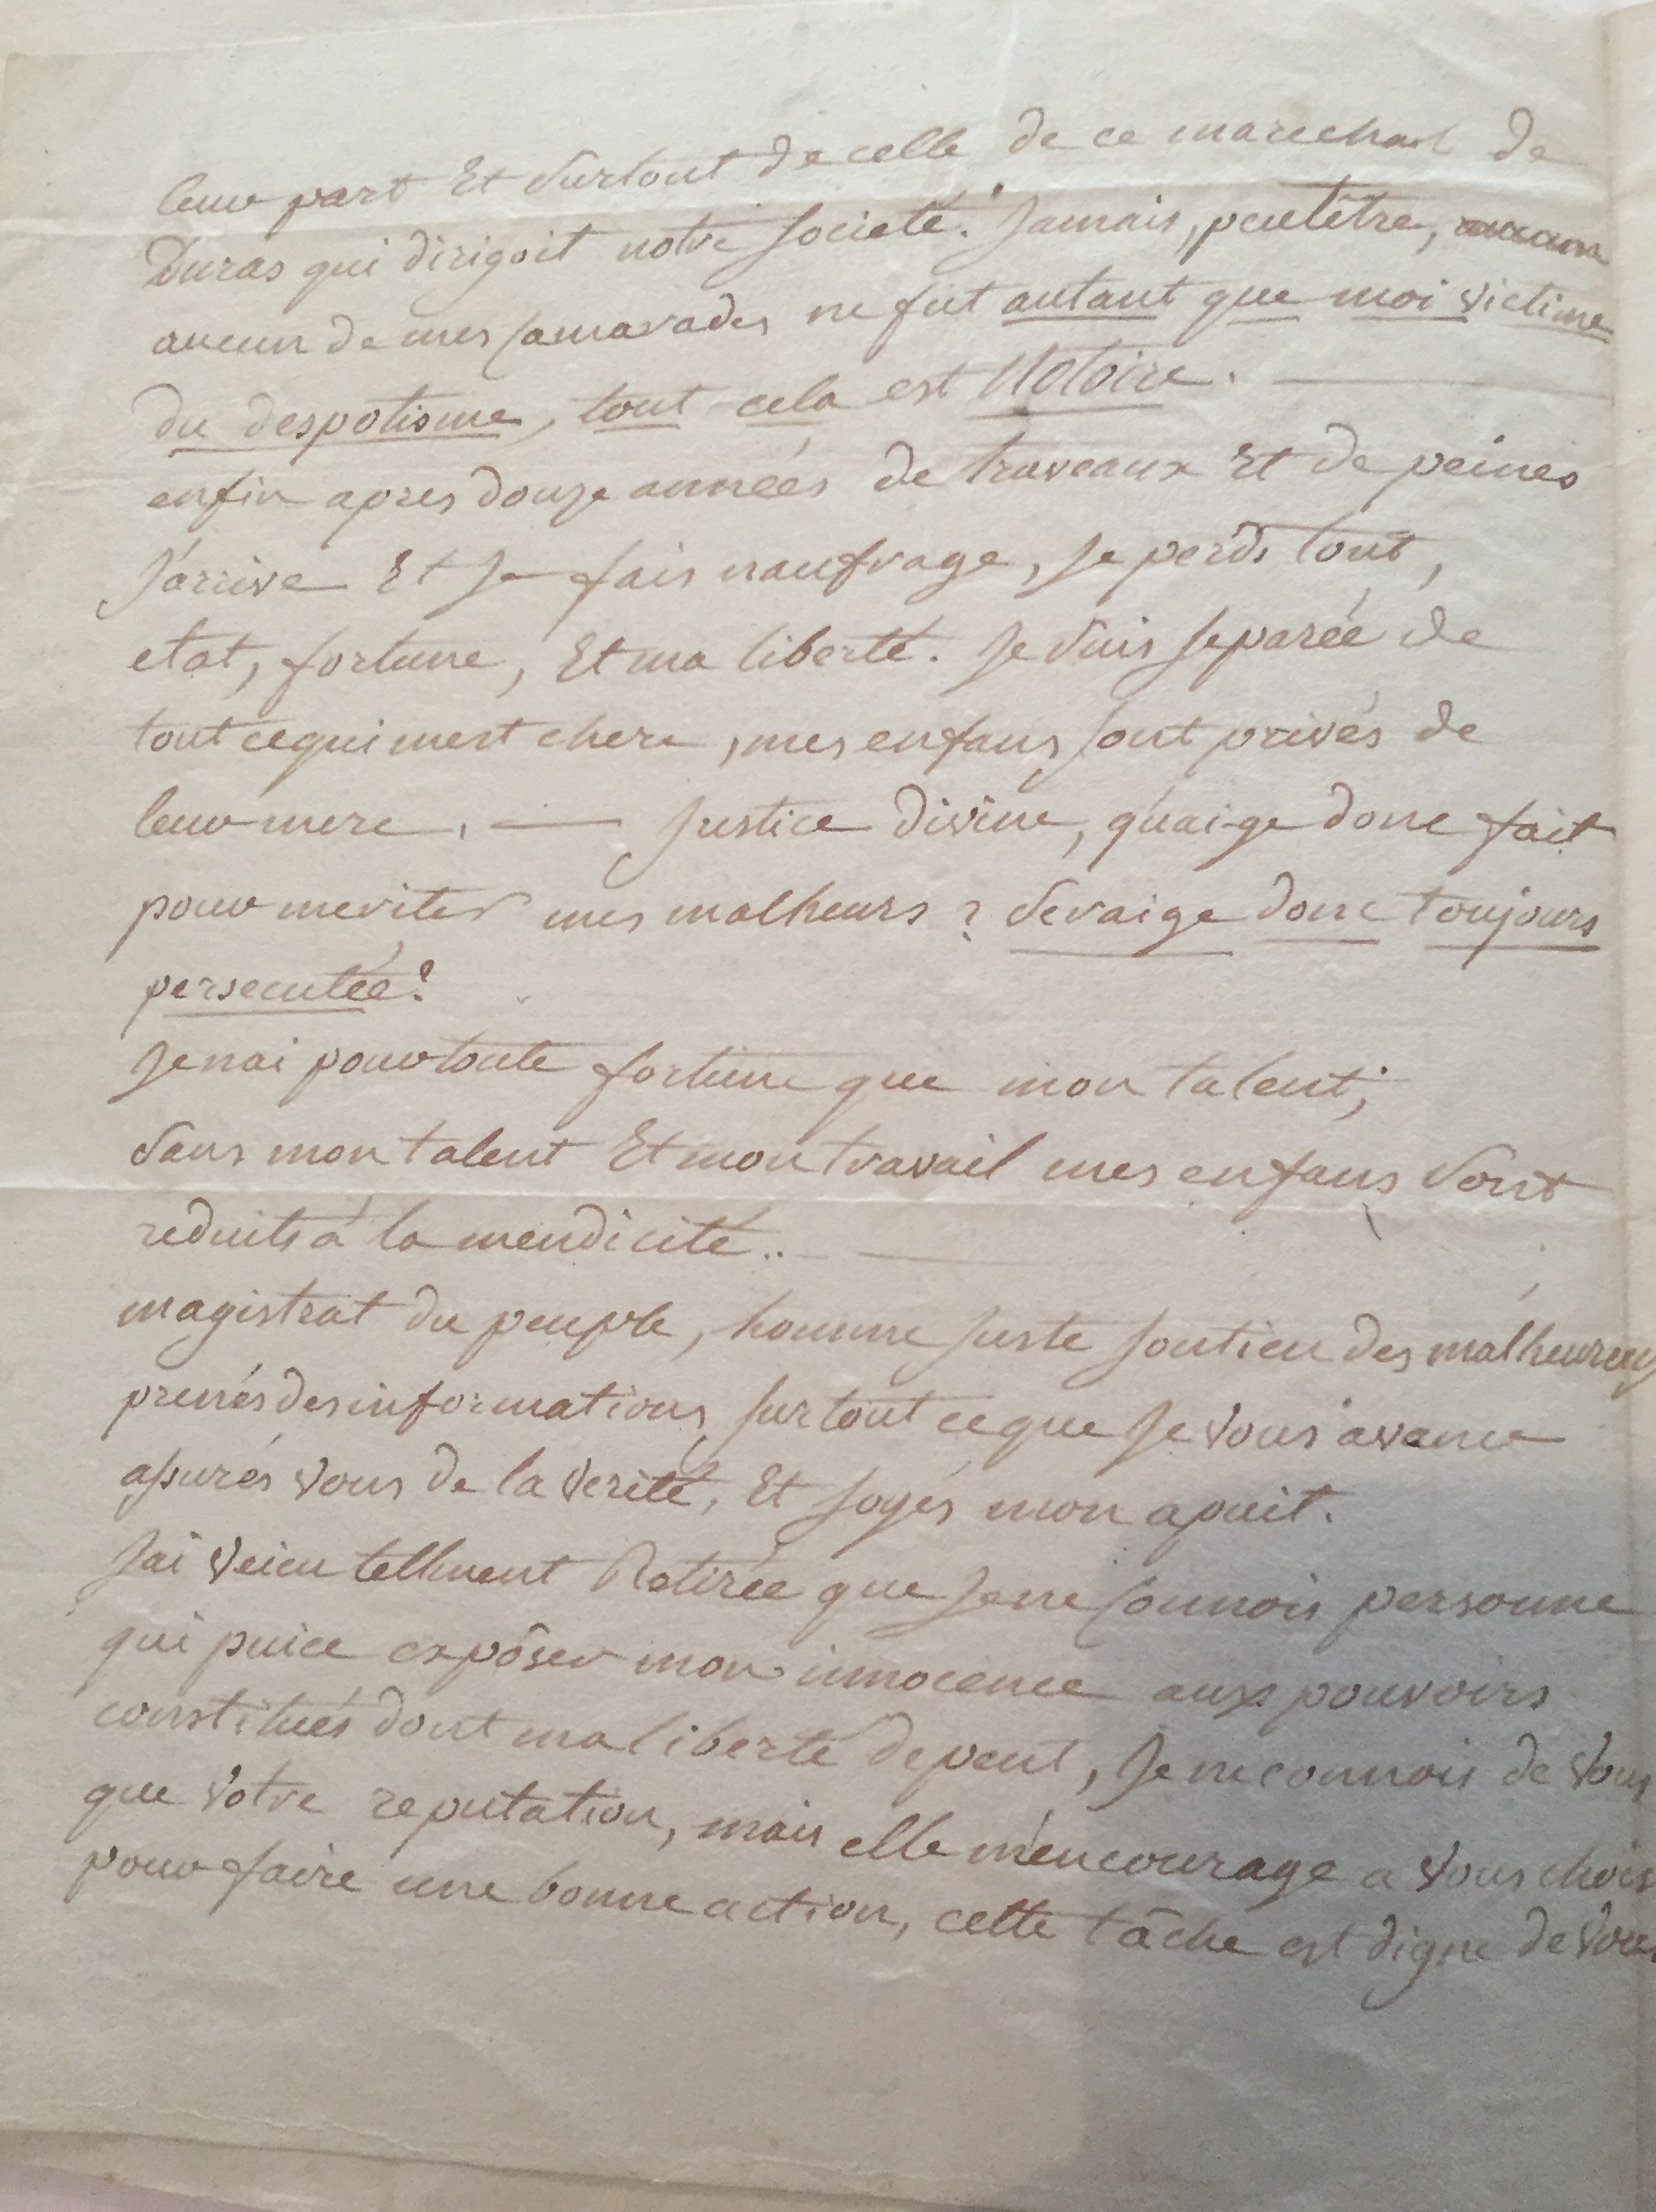 leur part Et surtout de celle de ce marechal de
Duras qui dirigoit notre societé. Jamais, peutètre,
aucun de mes camarades ne fut autant que moi victime
du despotisme, tout cela est Notoire. —
enfin apres douze années de traveaux Et de peines
J'arrive Et Je fais naufrage, Je perds tout,
etat, fortune, Et ma liberté. Je suis separée de
tout cequi mest chere, mes enfans sont privés de
leur mere. — Justice divine, qu'ai-ge donc fait
pour meriter mes malheurs ? Seraige donc toujours
persecutée?
Je nai pour toute fortune que mon talent;
sans mon talent Et mon travail mes enfans sont
reduits à la mendicité.. —
magistrat du peuple, homme Juste soutien des malheureux
prenés des informations sur tout ceque Je vous avance
assurés vous de la verité, Et soyés mon apuit.
Jai veicu tellment Retirée que Je ne connois personne
qui puice expôser mon innocence aux pouvoirs
constitués dont ma liberté depent, Je ne connois de vous
que votre reputation, mais elle m'encourage a vous chois
pour faire une bonne action, cette tâche est digne de vous